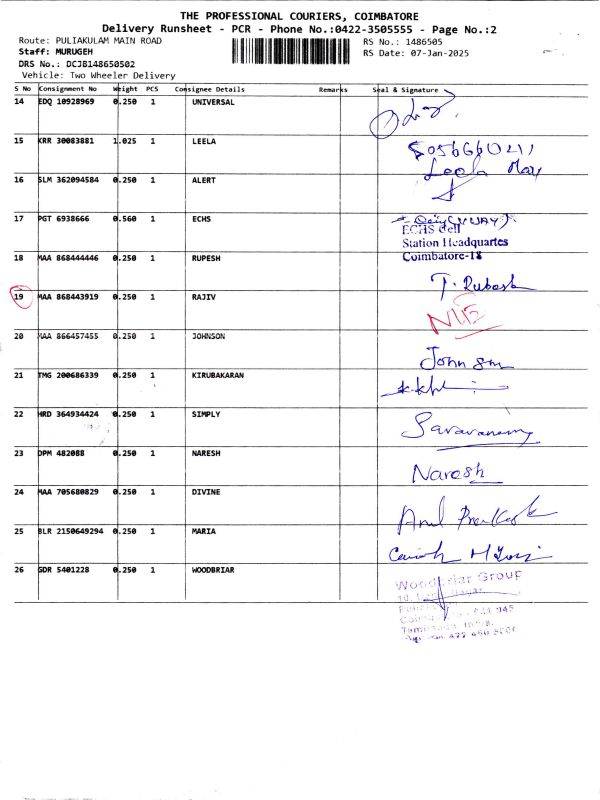 THE PROFESSIONAL COURIERS, COIMBATORE
Delivery Runsheet - PCR - Phone No.:0422-3505555 - Page No.:2
Route: PULIAKULAM MAIN ROAD
RS No.: 1486505
Staff: MURUGEH
RS Date: 07-Jan-2025
DRS No.: DCJB148650502
Vehicle: Two Wheeler Delivery
S No Consignment No Weight PCS Consignee Details Remarks Seal & Signature
14 EDQ 10928969 0.250 1 UNIVERSAL
15 KRR 30083881 1.025 1 LEELA
Leela May
16 SLM 362094584 0.250 1 ALERT
17 PGT 6938666 0.560 1 ECHS
ECHS Cell
Station Headquartes
Coimbatore-18
18 MAA 868444446 0.250 1 RUPESH
T. Rubash
19 MAA 868443919 0.250 1 RAJIV
20 MAA 866457455 0.250 1 JOHNSON
Johnson
21 TMG 200686339 0.250 1 KIRUBAKARAN
22 HRD 364934424 0.250 1 SIMPLY
23 DPM 482088 0.250 1 NARESH
Naresh
24 MAA 705680829 0.250 1 DIVINE
25 BLR 2150649294 0.250 1 MARIA
26 GDR 5401228 0.250 1 WOODBRIAR
Woodbriar Group